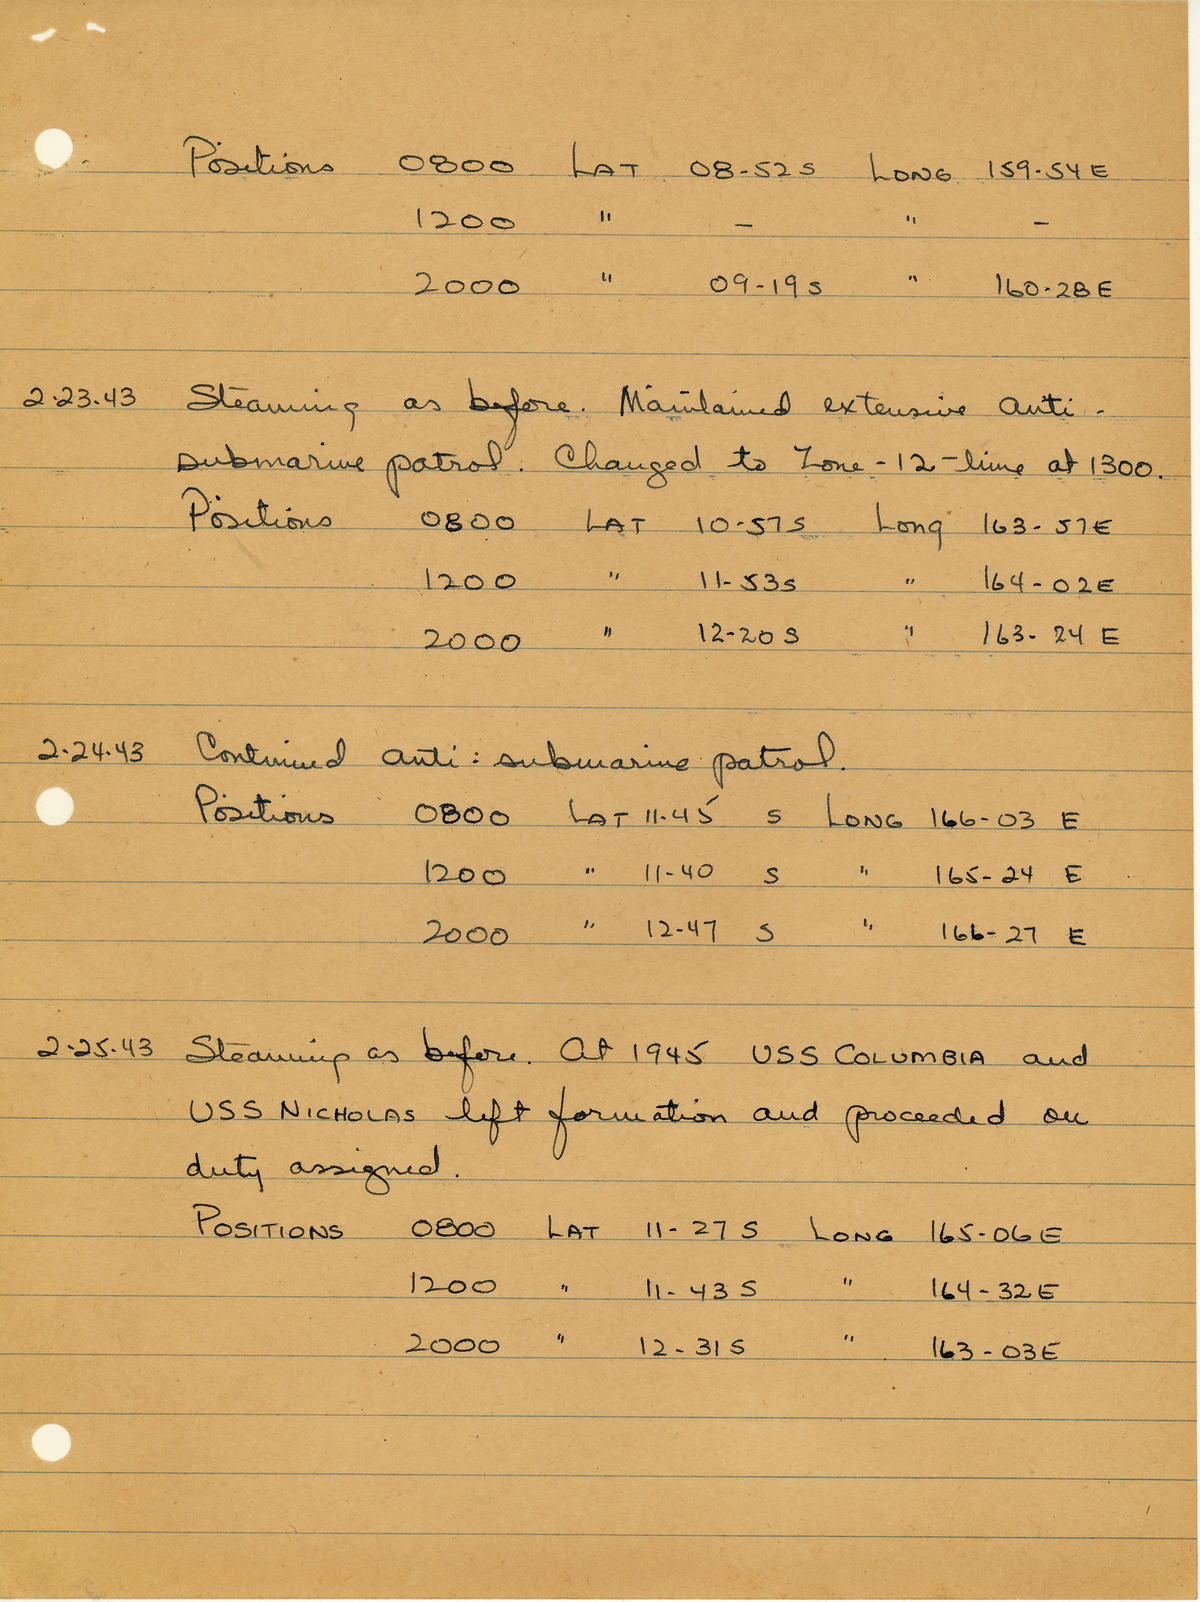 Positions 0800 LAT 08-52S LONG 159-54E
1200 " - " -
2000 " 09-19S " 160-28E
2-23-43 Steaming as before. Maintained extensive anti-
submarine patrol. Changed to Zone-12-time at 1300.
Positions 0800 LAT 10-57S Long 163-57E
1200 " 11-53S " 164-02E
2000 " 12-20S " 163-24E
2-24-43 Continued anti-submarine patrol.
Positions 0800 LAT 11-45 S LONG 166-03 E
1200 " 11-40 S " 165-24 E
2000 " 12-47 S " 166-27 E
2-25-43 Steaming as before. At 1945 USS COLUMBIA and
USS NICHOLAS left formation and proceeded on
duty assigned.
POSITIONS 0800 LAT 11-27S LONG 165-06E
1200 " 11-43S " 164-32E
2000 " 12-31S " 163-03E